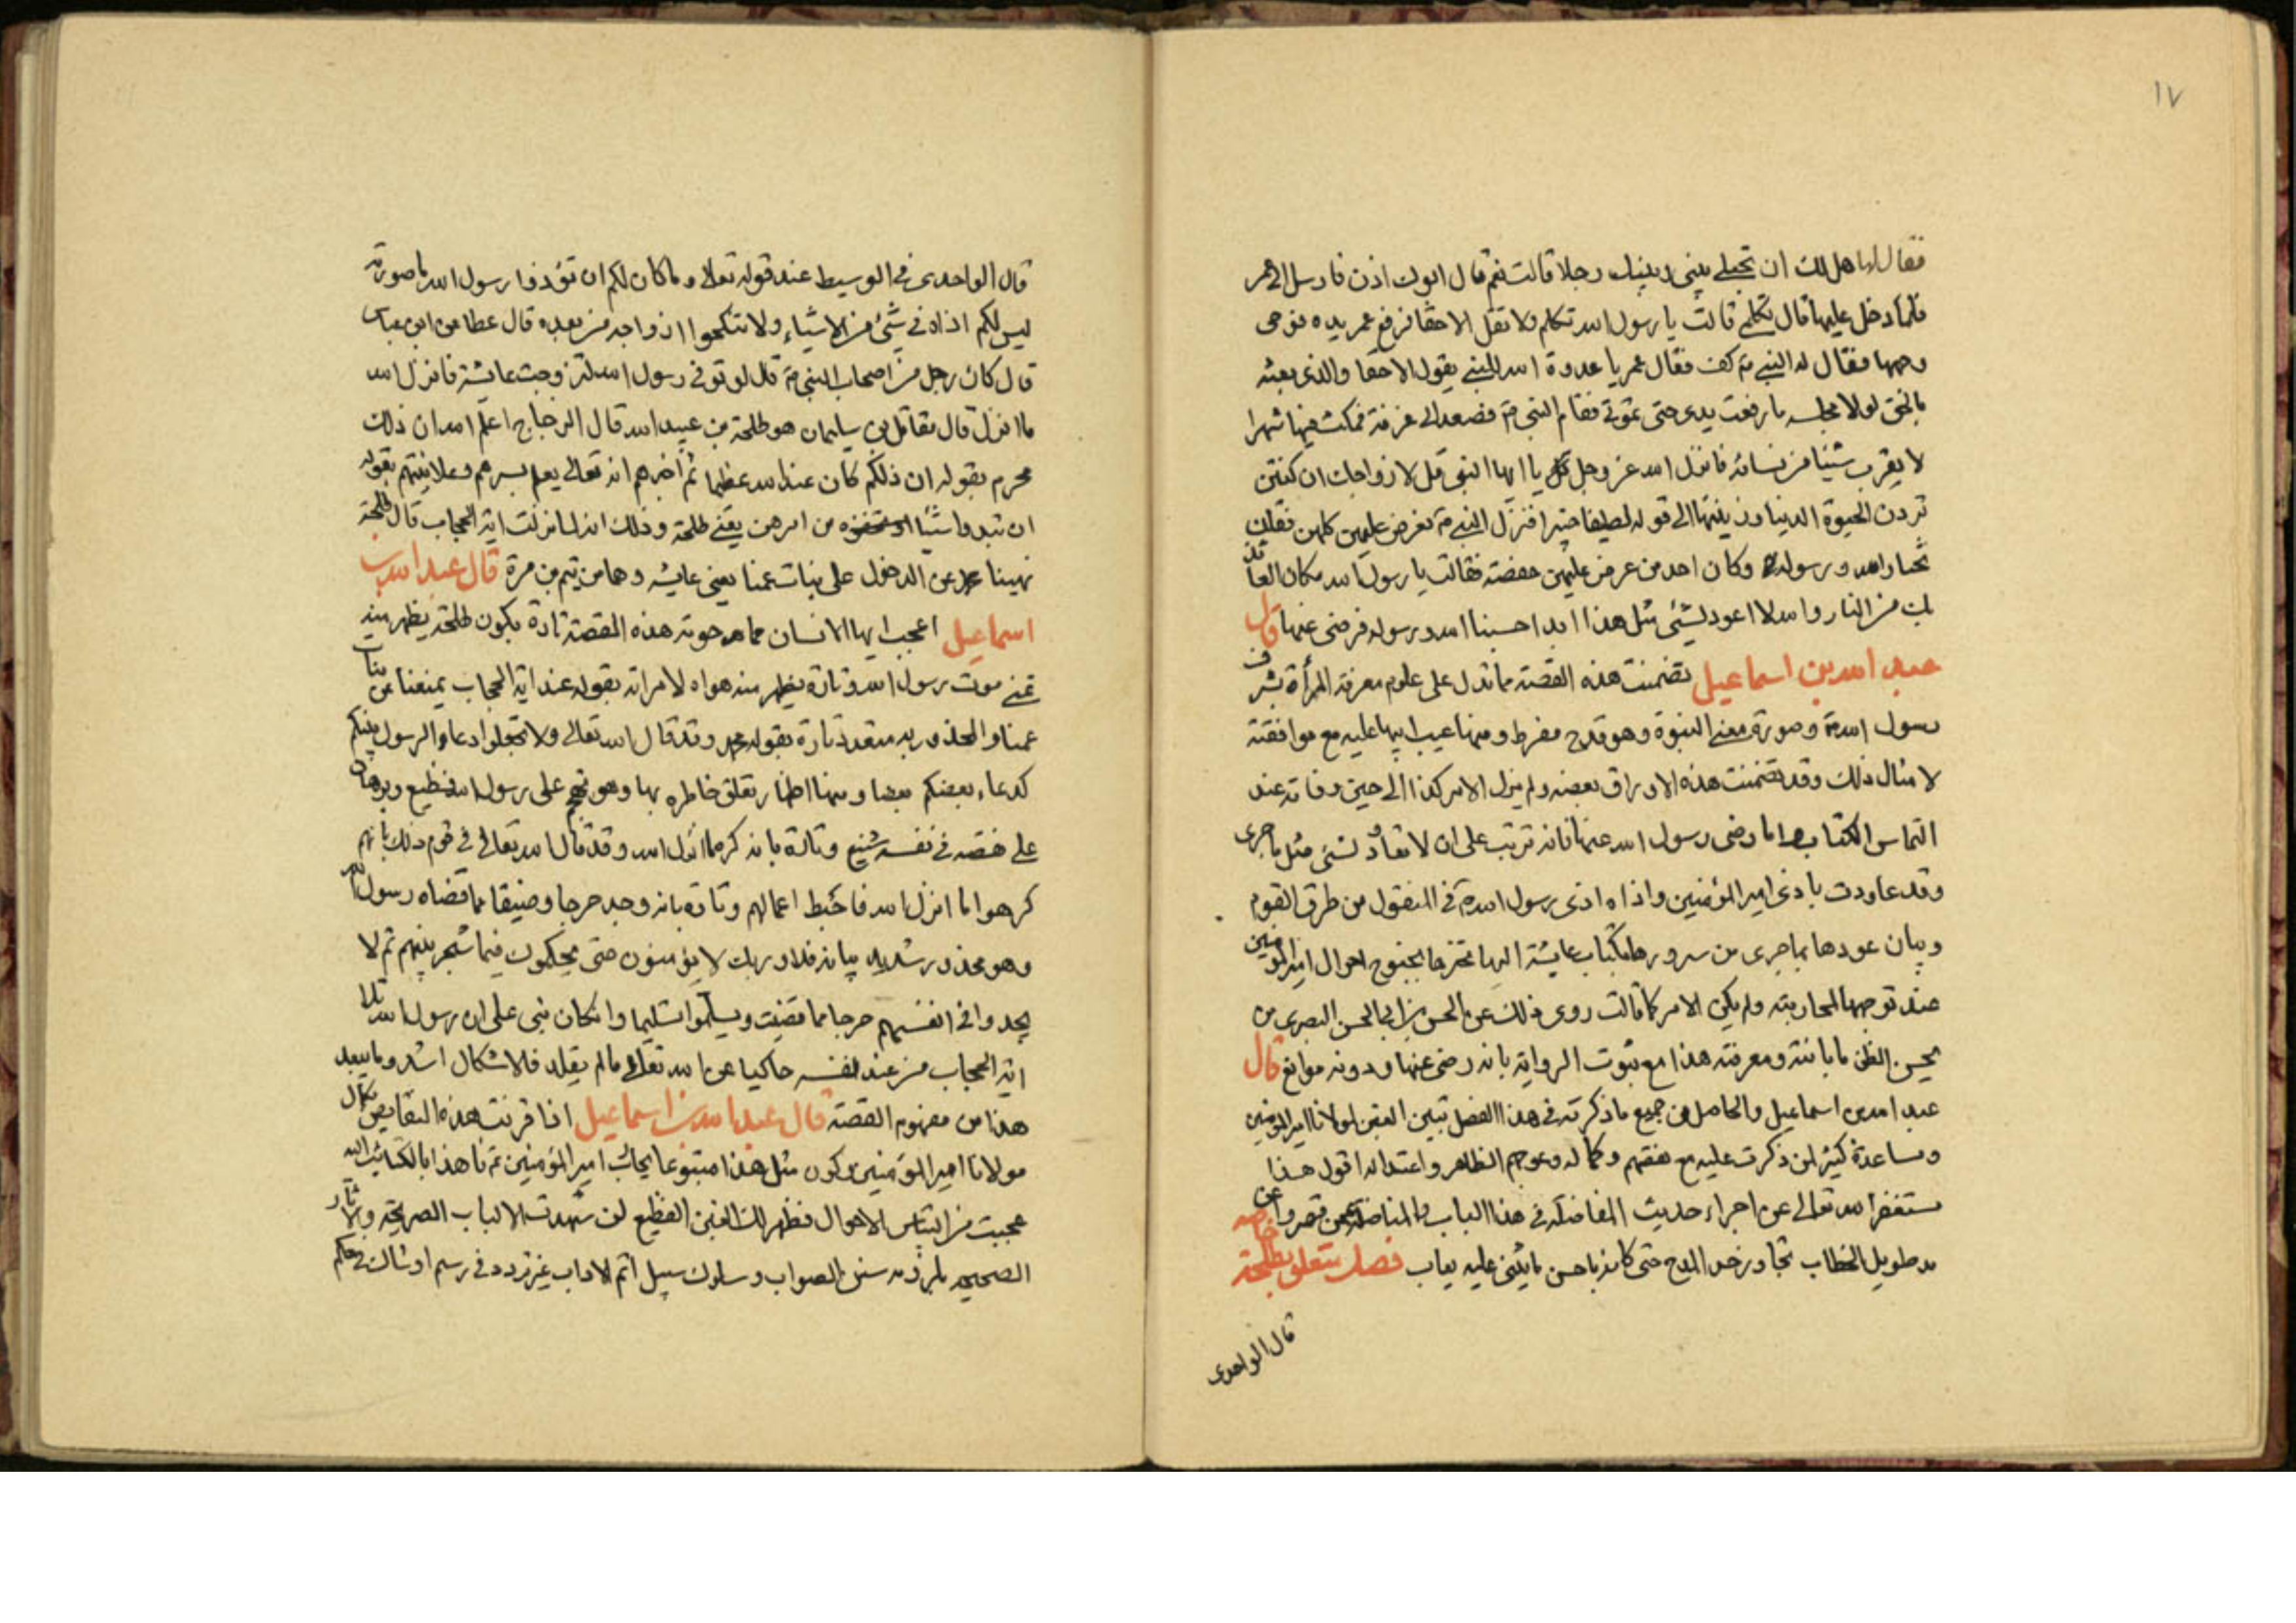 ١٧
فقال لها هل لك ان تجعلي بيني وبينك رجلا قالت نعم قال ابوك اذن فارسل الى عمر
فلما دخل عليها قال تكلمي قالت يا رسول الله تكلم ولا تقل الا حقا فرفع عمر يده فوجى
وجهها فقال له النبي ص كف فقال عمر يا عدوة الله النبي يقول الا حقا والذي بعثه
بالحق لولا مجلسه ما رفعت يدي حتى تموتي فقام النبي ص فصعد الى غرفة فمكث فيها شهرا
لا يقرب شيئا من نسائه فانزل الله عز وجل يا ايها النبي قل لازواجك ان كنتن
تردن الحيوة الدنيا وزينتها الى قوله لطيفا خبيرا فنزل النبي ص فعرض عليهن كلهن فقلن
نختار الله ورسوله وكان احد من عرض عليهن حفصة فقالت يا رسول الله مكان العائذ
بك من النار والله لا اعود لشئ مثل هذا ابدا احسبنا الله ورسوله فرضى عنها قال
عبد الله بن اسماعيل تضمنت هذه القصة ما تدل على علوم معرفة المرأة بشرف
رسول الله ص وصورة معنى النبوة وهو قدح مفرط ومنها عيب ابيها عليه مع موافقته
لامثال ذلك وقد تضمنت هذه الاوراق بعضه ولم يزل الامر كذا الى حين وفاته عند
التماس الكتاب واما رضى رسول الله عنها فانه ترتب على ان لا تعاود لشئ مثل ما جرى
وقد عاودت باذى امير المؤمنين واذاه اذى رسول الله ص في المنقول من طرق القوم
وبيان عودها بما جرى من سرورها بكتاب عايشة اليها تخبرها بجنوح احوال امير المؤمنين
عند توجهها لمحاربته ولم يكن الامر كما قالت روى ذلك عن الحسن بن ابي الحسن البصرى من
يحسن الظن بامانته ومعرفته هذا مع ثبوت الرواية بانه رضى عنها ودونه موانع قال
عبد الله بن اسماعيل والحاصل من جميع ما ذكرته في هذا الفصل تبين الغبن لمولانا امير المؤمنين
ومساعدة كثير لمن ذكرت عليه مع نقصهم وكماله وعوجهم الظاهر واعتداله اقول هذا
مستغفرا لله تعالى عن اجراء حديث المفاضلة في هذا الباب والمناضلة عمن قصروا عن
مد طويل الخطاب تجاوز حد المدح حتى كانه باحسن ما يثنى عليه يعاب فصل يتعلق بطلحة خاصه
قال الواحدى
قال الواحدى في الوسيط عند قوله تعالى وما كان لكم ان تؤذوا رسول الله ما صورته
ليس لكم اذاه في شئ من الاشياء ولا تنكحوا ازواجه من بعده قال عطا عن ابن عباس
قال كان رجل من اصحاب النبي ص قال لو توفى رسول الله لتزوجت عايشة فانزل الله
ما انزل قال مقاتل بن سليمان هو طلحة بن عبيد الله قال الزجاج اعلم الله ان ذلك
محرم بقوله ان ذلكم كان عند الله عظيما ثم اخبرهم انه تعالى يعلم سرهم وعلانيتهم بقوله
ان تبدوا شيئا او تخفوه من امرهن يعني طلحة وذلك انه لما نزلت اية الحجاب قال طلحة
نهينا عن الدخول على بنات عمنا يعني عايشه وهما من تيم بن مرة قال عبد الله بن
اسماعيل اعجب ايها الانسان مما حوته هذه القصة تارة بكون طلحة يظهر منه
تمنى موت رسول الله وتارة يظهر منه هواه لامراته بقوله عند اية الحجاب يمنعنا من بنات
عمنا والمحذور به متعدد تارة بقوله محمد وقد قال الله تعالى ولا تجعلوا دعاء الرسول بينكم
كدعاء بعضكم بعضا ومنها اظهار تعلق خاطره بها وهو تهجم على رسول الله فظيع وبرهان
على نقصه في نفسه شنيع وتارة بانه كره ما انزل الله وقد قال الله تعالى في قوم ذلك بانهم
كرهوا ما انزل الله فاحبط اعمالهم وتارة بانه وجد حرجا وضيقا مما قضاه رسول الله
وهو محذور شديد بيانه فلا وربك لا يؤمنون حتى يحكموك فيما شجر بينهم ثم لا
يجدوا في انفسهم حرجا مما قضيت ويسلموا تسليما وان كان بنى على ان رسول الله تلا
اية الحجاب من عند نفسه حاكيا عن الله تعالى ما لم يقله فالاشكال اشد وما يبعد
هذا من مفهوم القصة قال عبد الله بن اسماعيل اذا قرنت هذه النقايص بكمال
مولانا امير المؤمنين وكون مثل هذا متبوعا يحارب امير المؤمنين ع نافذا بالكتائب اليه
عجبت من التباس الاحوال فظهر لك الغبن الفظيع لمن شهدت الالباب الصريحة والاثار
الصحيحه بلزومه سنن الصواب وسلوك سبيل اتم الاداب غير تردد في رسم او شاك في حكم